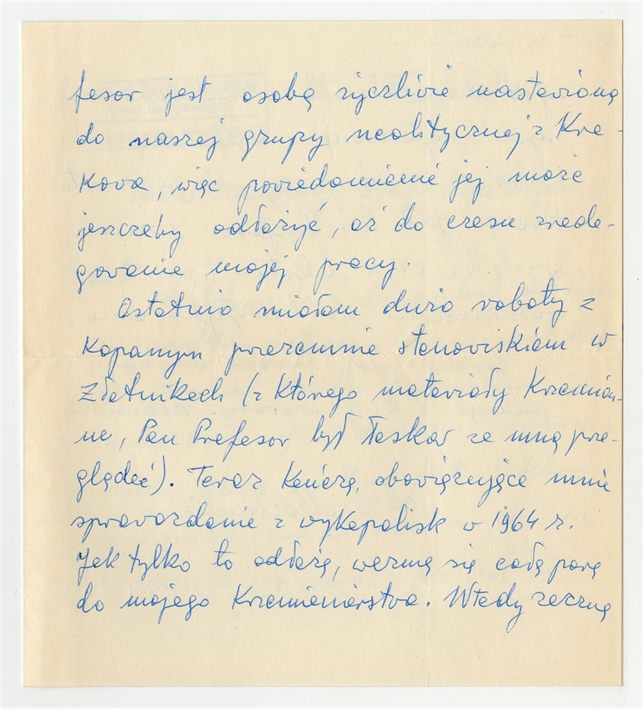 fesor jest osobą życzliwie nastawioną
do naszej grupy neolitycznej z Kra-
kowa, więc powiedomienie jej może
jeszczeby odłożyć, aż do czasu zreda-
gowania mojej pracy.
Ostatnio miałam dużo roboty z
kopanym przezemnie stanowiskiem w
Złotnikach (z którego materiały krzemien-
ne, Pan Profesor był łaskaw ze mną prze-
glądać). Teraz kończę, obowiązujące mnie
sprawozdanie z wykopalisk w 1964 r.
Jak tylko to odłożę, wezmę się całą parą
do mojego krzemieniarstwa. Wtedy zacznę